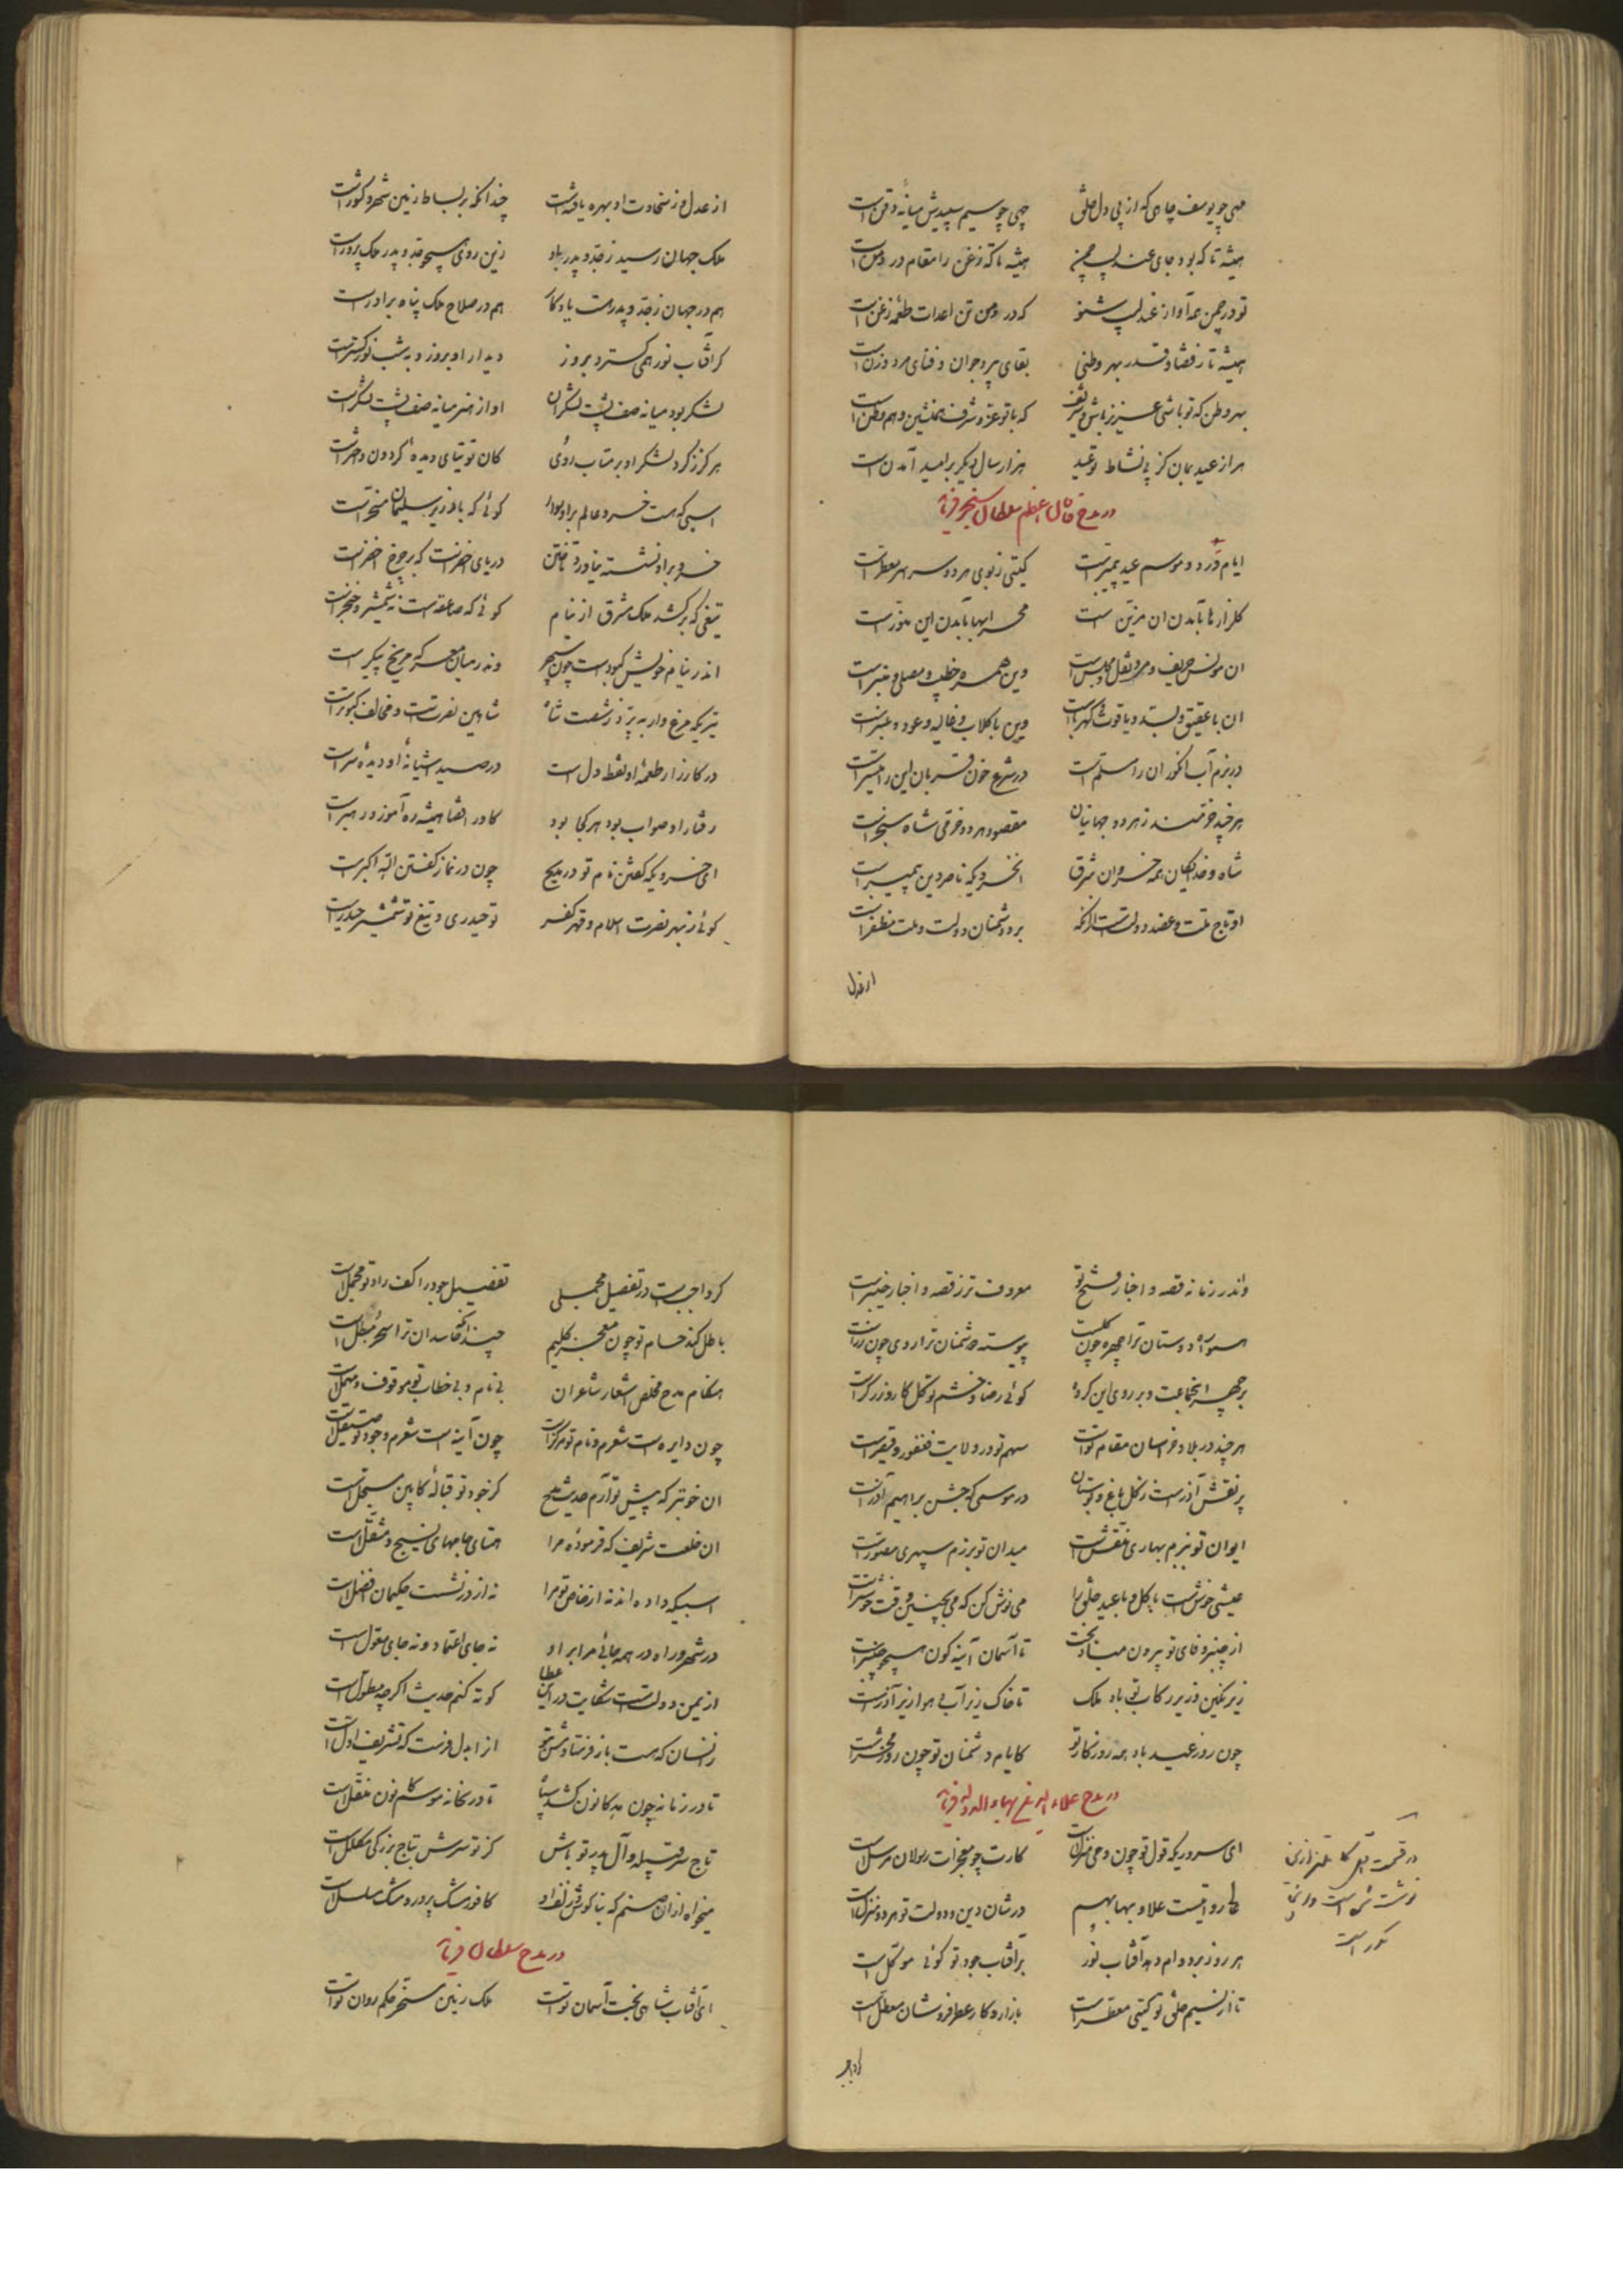 مهی چو یوسف چاهی که از پی دل خلق چهی چو سیم سپیدش میانهٔ ذقن است
همیشه تا که بود جای عندلیب چمن همیشه تا که زغن را مقام در دمن است
تو در چمن همه آواز عندلیب شنو که در دمن تن اعدات طعمهٔ زغن است
همیشه تا ز قضا و قدر بهر وطنی بقای پیر و جوان و فنای مرد و زن است
بهر وطن که تو باشی عزیز باش و شریف که با تو عز و شرف همنشین و هم وطن است
هزار عید بمان کز پی نشاط تو عید هزار سال دیگر بر امید آمدن است
در مدح خاقان اعظم سلطان سنجر فرماید
ایام ورد و موسم عید پیمبرست گیتی ز بوی هر دو سراسر معطرست
گلزارها بآمدن آن مزین است محرابها بآمدن این منورست
آن مونس حریف و می و نقل و مجلس است وین همره خطیب و مصلی و منبرست
آن با عقیق و بسد و یاقوت و کهرباست وین با گلاب و غالیه و عود و عنبرست
در بزم آب انگور آن را مسلم است در شرع خون قربان این را میسرست
هر چند خرمند ز هر دو جهانیان مقصود هر دو خرمی شاه سنجرست
شاه و خدایگان همه خسروان شرق آن خسرویکه ناصر دین پیمبرست
او تاج ملت و عضد دولتست از آنکه بر دشمنان دولت و ملت مظفرست
از عدل
از عدل و ز سخاوت او بهره یافتست چندانکه بر بساط زمین شهر و کشورست
ملک جهان رسید ز جد و پدر باو زین روی همچو جد و پدر ملک پرورست
هم در جهان ز جد و پدر هست یادگار هم در صلاح ملک پناه برادرست
گر آفتاب نور همی گسترد بروز دیدار او بروز و به شب نورگسترست
لشکر بود میانه صف پشت لشکران او از هنر میانه صف پشت لشکرست
هرگز ز گرد لشکر او بر متاب روی کان توتیای دیده گردون و اخترست
اسبی که هست خسرو عالم برو سوار گوئی که باد زیر سلیمان مسخرست
خسرو برو نشسته بناورد تاختن دریای اخضرست که بر چرخ اخضرست
تیغی که برکشد ملک شرق از نیام گوئی که صاعقه ست نه شمشیر و خنجرست
اندر نیام خویش کبودست چون سپهر وندر میان معرکه مریخ پیکرست
تیریکه مرغ وار بپرد ز شست شاه شاهین نصرت ست و مخالف کبوترست
در کارزار طعمهٔ او نقطهٔ دل است در صید آشیانهٔ او دیدهٔ سرست
رفتار او صواب بود هر کجا بود کاو را قضا همیشه ره آموز و رهبرست
ای خسرویکه گفتن نام تو در مدیح چون در نماز گفتن الله اکبرست
گوئی ز بهر نصرت اسلام و قهر کفر تو حیدری و تیغ تو شمشیر حیدرست
واندر زمانه قصه و اخبار فتح تو معروف تر ز قصه و اخبار خیبرست
همواره دوستان ترا چهره چون گلست پیوسته دشمنان ترا روی چون زرست
بر چهر آن جماعت و بر روی این گروه گوئی رضا و خشم تو گلکار و زرگرست
هر چند در بلاد خراسان مقام تست سهم تو در ولایت فغفور و قیصرست
پر نقش آزرست ز گل باغ و بوستان در موسمی که جشن براهیم آزرست
ایوان تو ببزم بهاری منقش است میدان تو برزم سپهری مصورست
عیشی خوشست با گل و با عید خلق را می نوش کن که می بچنین وقت خوشترست
از چنبر وفای تو بیرون مباد بخت تا آسمان آینه گون همچو چنبرست
زیر نگین و زیر رکاب تو باد ملک تا خاک زیر آب و هوا زیر آذرست
چون روز عید باد همه روزگار تو کایام دشمنان تو چون روز محشرست
در مدح علاء الدین بهاء الدوله فرماید
ای سروریکه قول تو چون وحی منزل است کارت چو معجزات رسولان مرسل است
در شان دین و دولت تو هر دو منزل است
هر روز بر دوام دهد آفتاب نور بر آفتاب جود تو گوئی موکل است
تا از نسیم خلق تو گیتی معطرست بازار و کار عطر فروشان معطل است
گر واجب
گر واجب است در تفصیل مجملی تفصیل جود را کف راد تو مجمل است
باطل کند حسام تو چون معجز کلیم چندانکه حاسدان ترا سحر مبطل است
هنگام مدح مخلص اشعار شاعران بی نام و بی خطاب تو موقوف و مهمل است
چون دایره ست شعرم و نام تو مرکزست چون آینه است شعرم و جود تو صیقل است
آن خوبتر که پیش تو آرم حدیث مدح کز خود تو قبالهٔ کابین مسجل است
آن خلعت شریف که فرمودهٔ مرا همتای جامهای نسیج و مثقل است
اسبیکه داده اند نه از خاص تو مرا نه از در نشست حکیمان افضل است
در شهر و راه در همه جائی مرا برو نه جای اعتماد و نه جای معول است
از یمن دولتست شکایت درین عطا کوته کنم حدیث اگرچه مطول است
زانسان که هست باز فرستادمش بتو از ابدل فرست که تشریف اول است
تا در زمانه چون مه کانون کشد سپاه تا در بخانه موسم کانون منقل است
تاج سر قبیله و آل پدر تو باش کز تو سرش بتاج بزرگی مکلل است
میخواه از آن صنم که بناگوش و زلف او کافور مشک پرور و مشک مسلسل است
در مدح سلطان فرماید
ای آفتاب شاهی تخت آسمان تست ملک زمین مسخر حکم روان تست